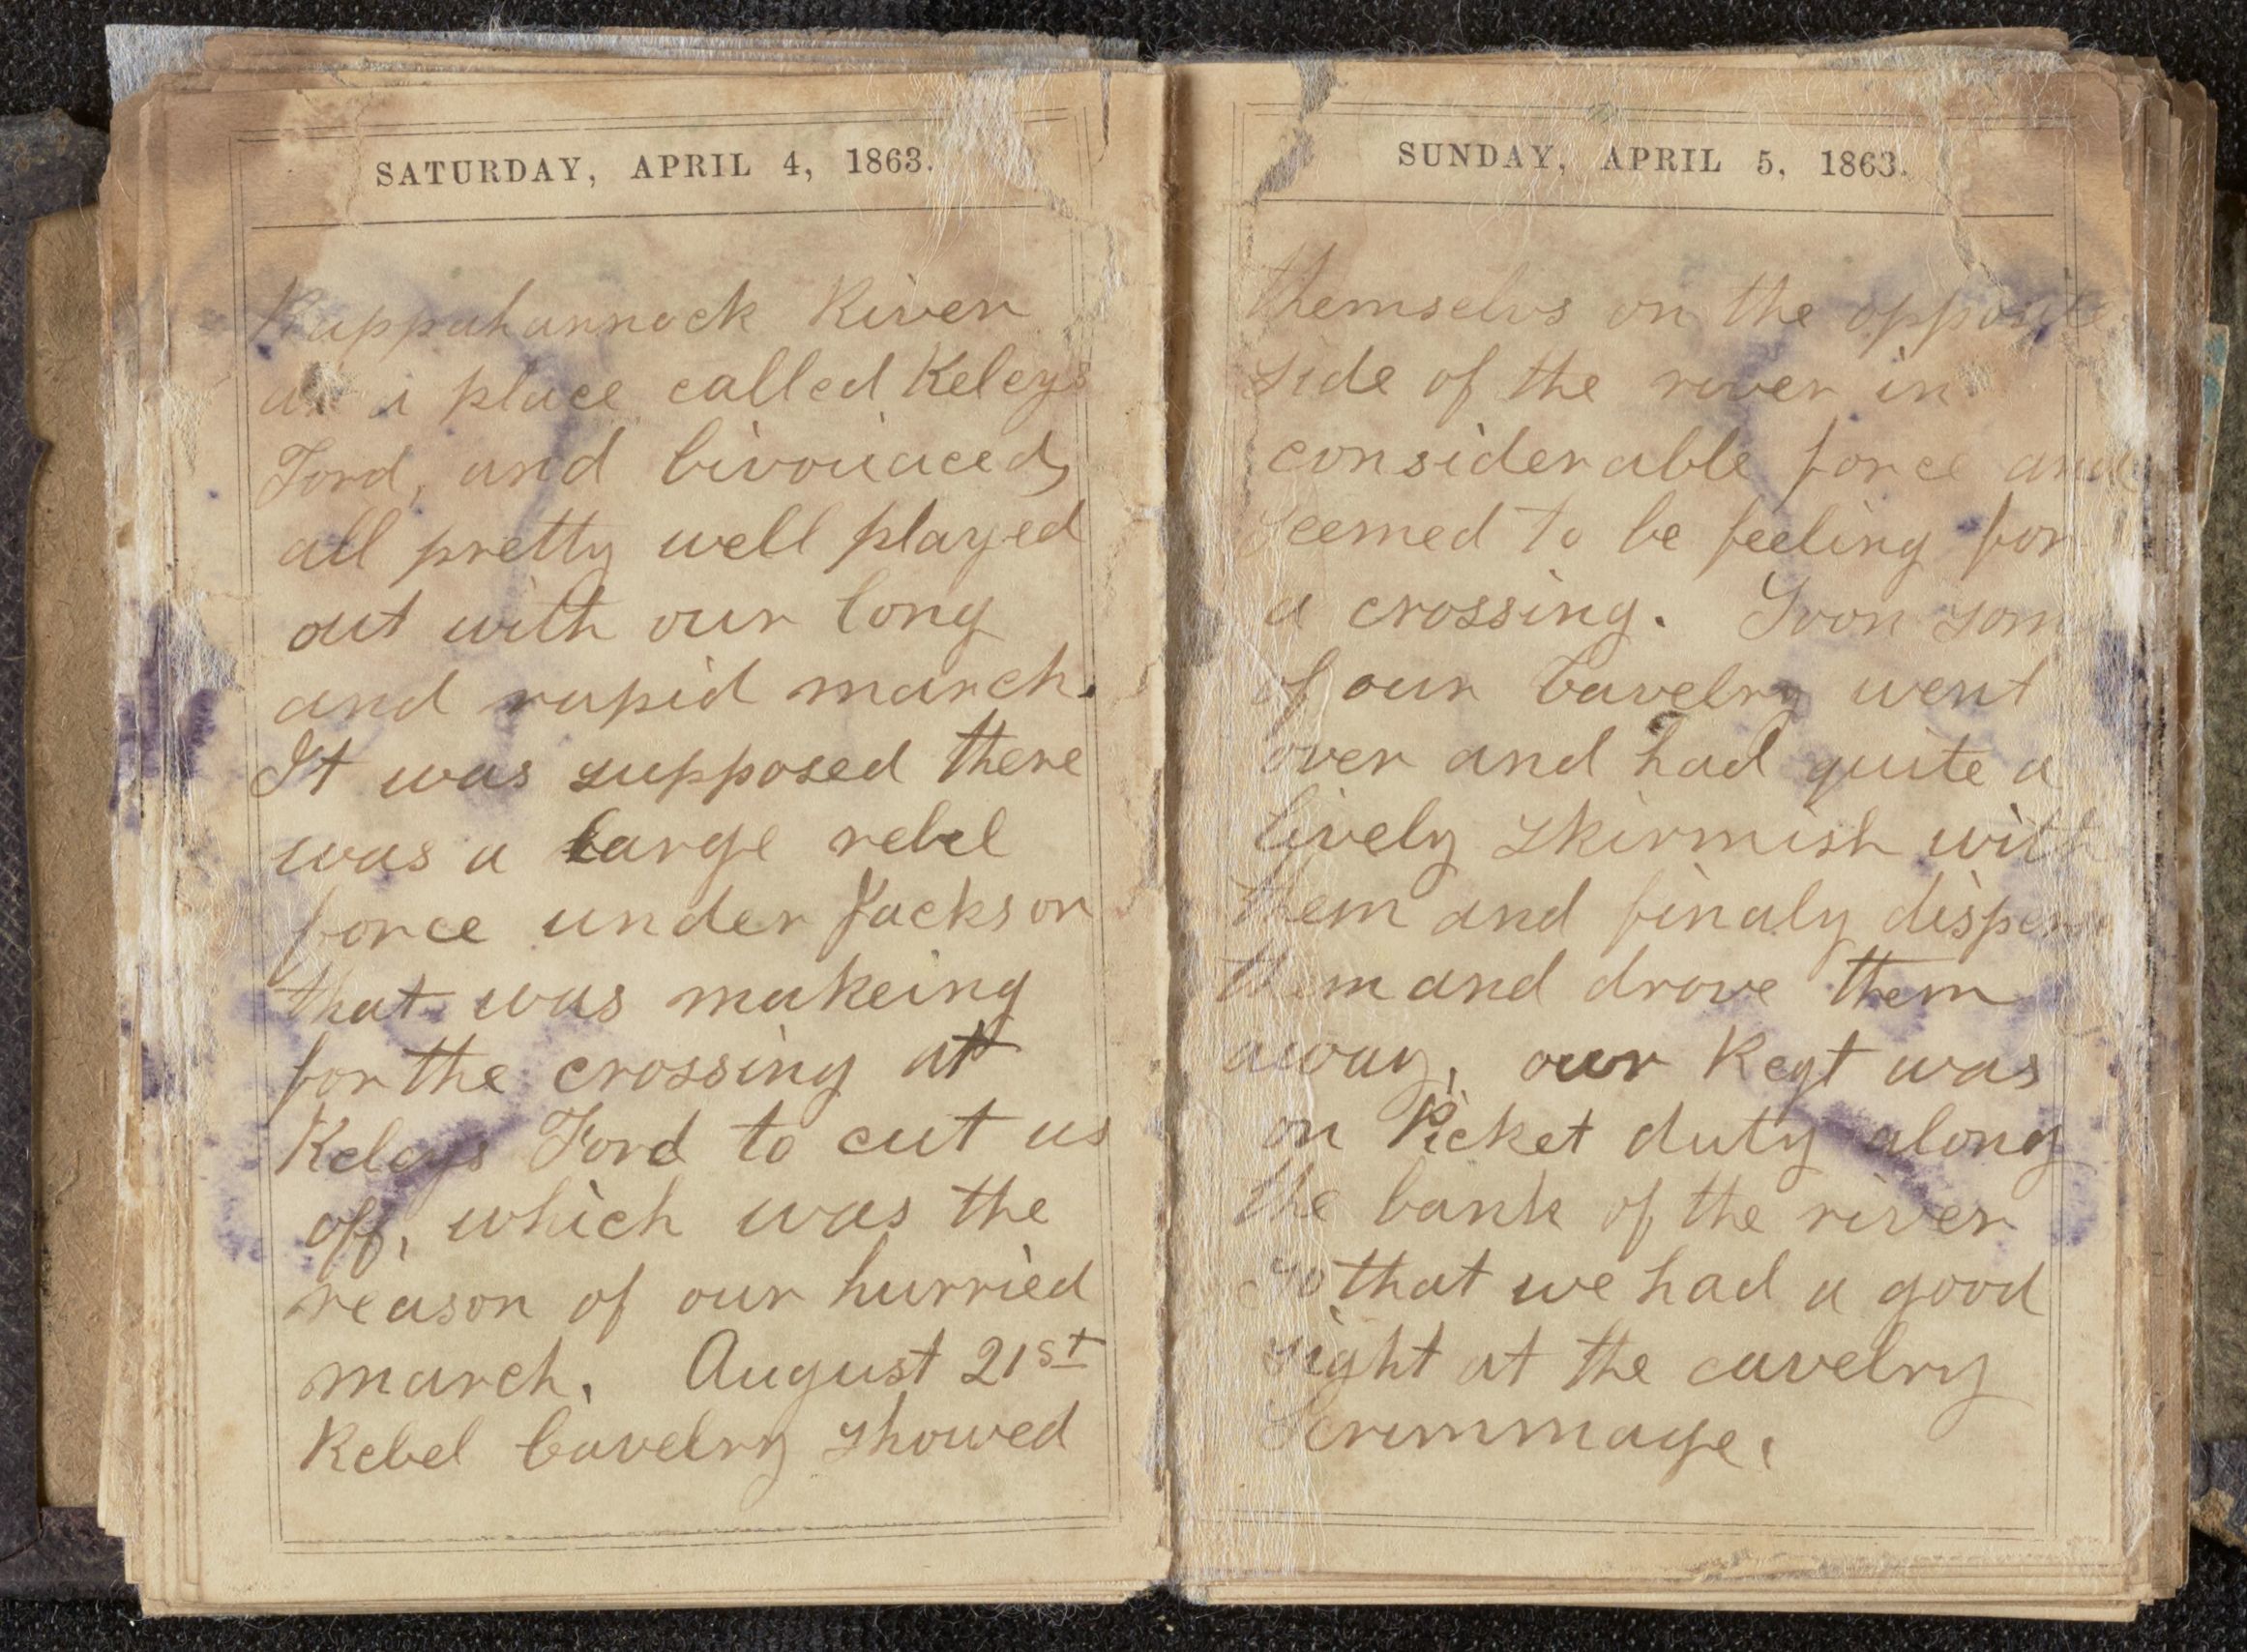 SATURDAY, APRIL 4, 1863.
Rappahannock River
at a place called Keleys
Ford, and bivouaced,
all pretty well played
out with our long
and rapid march.
It was supposed there
was a large rebel
force under Jackson
that was makeing
for the crossing at
Keleys Ford to cut us
off, which was the
reason of our hurried
march. August 21st
Rebel Cavelry showed
SUNDAY, APRIL 5, 1863.
themselvs on the opposite
side of the river in
considerable force and
seemed to be feeling for
a crossing. Soon som
of our Cavelry went
over and had quite a
lively skirmish with
them and finaly
them and drove them
away. our Regt was
on Picket duty along
the bank of the river
so that we had a good
sight at the cavelry
Scrimmage.